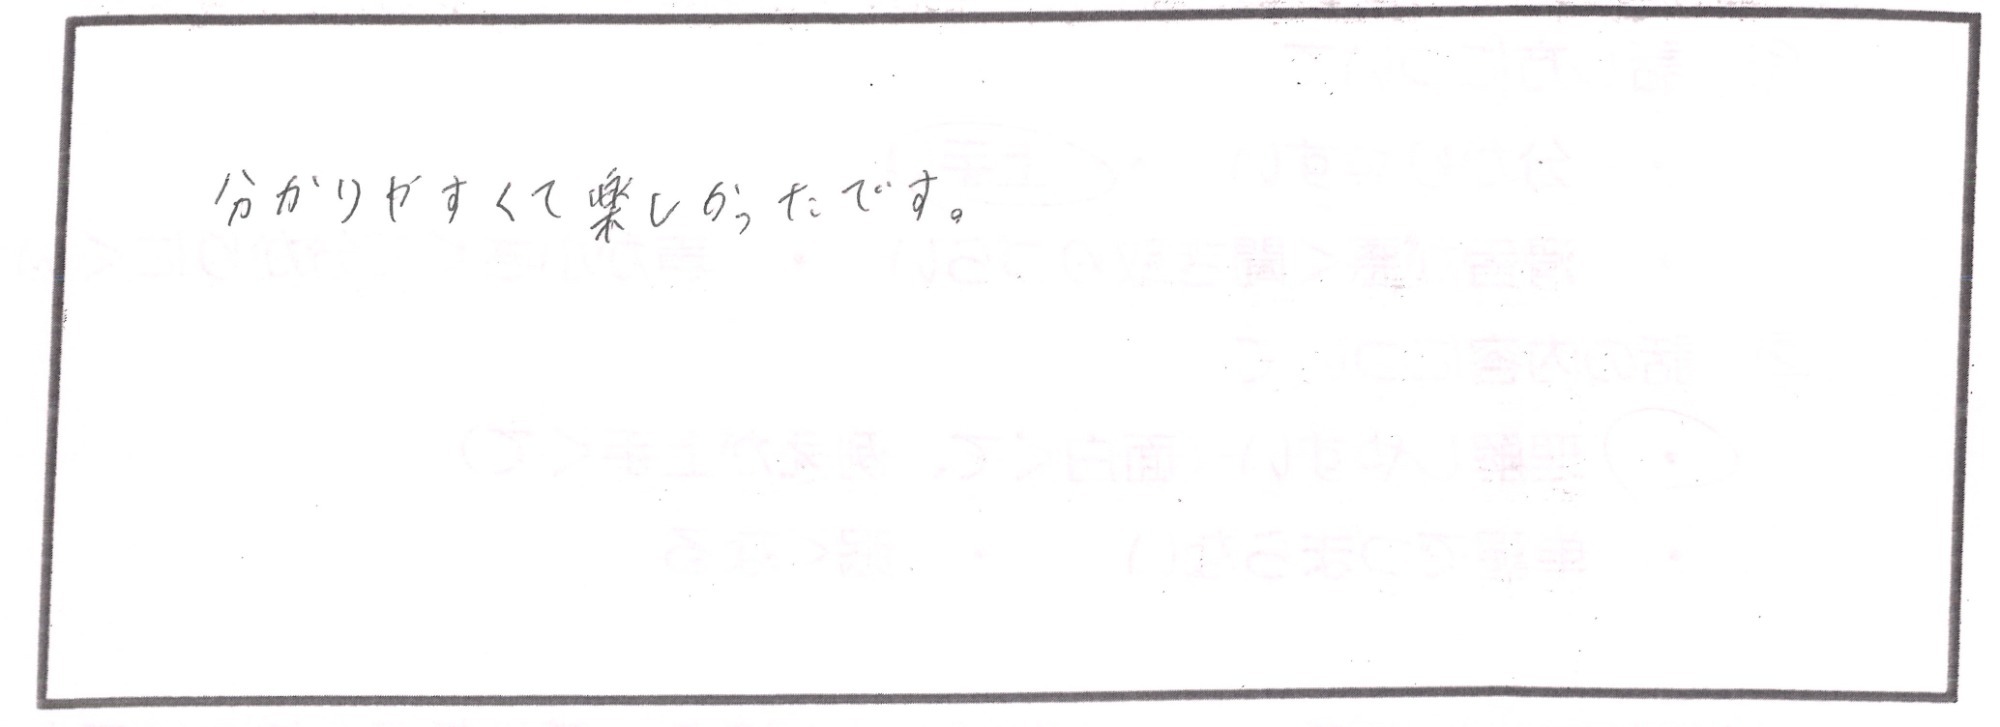 分かりやすくて楽しかったです。